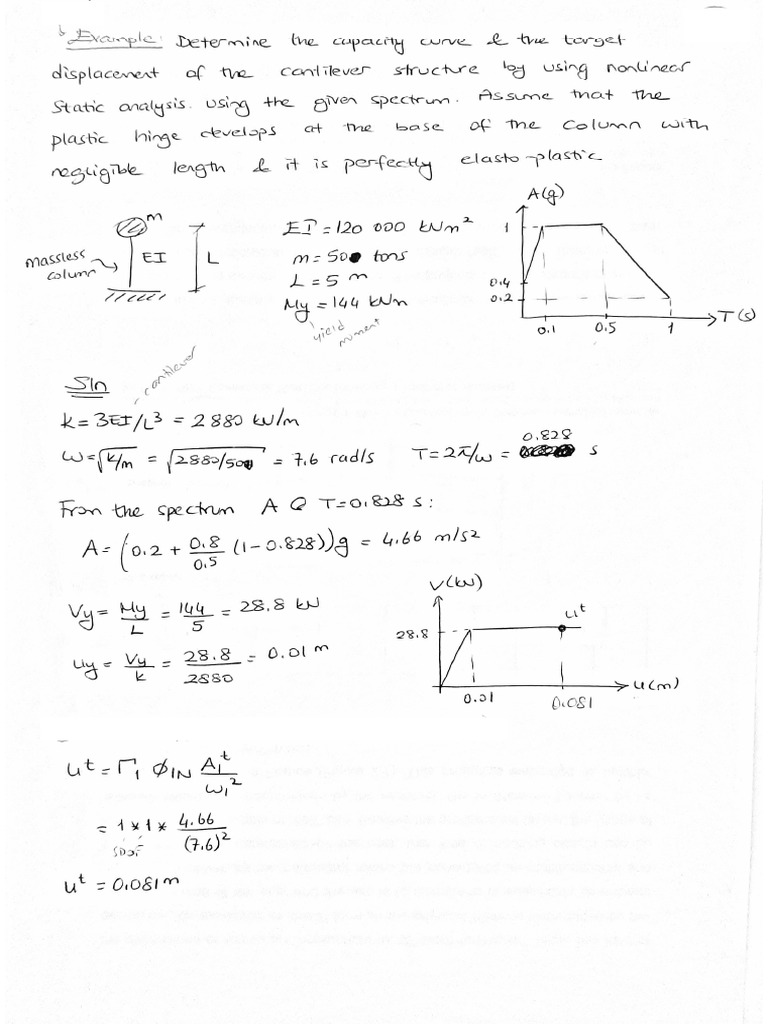 Example: Determine the capacity curve & the target
displacement of the cantilever structure by using nonlinear
static analysis. using the given spectrum. Assume that the
plastic hinge develops at the base of the column with
negligible length & it is perfectly elasto-plastic
m
massless
column
EI
L
EI = 120 000 kNm²
m = 50 tons
L = 5 m
My = 144 kNm
yield
moment
A(g)
1
0.4
0.2
0.1
0.5
1
T(s)
Sln
cantilever
k = 3EI/L³ = 2880 kN/m
ω = √k/m = √2880/50 = 7.6 rad/s T = 2π/ω = 0.828 s
From the spectrum A @ T=0.828 s:
A = (0.2 + 0.8/0.5 (1-0.828))g = 4.66 m/s2
Vy = My/L = 144/5 = 28.8 kN
uy = Vy/k = 28.8/2880 = 0.01 m
V(kN)
28.8
uᵗ
0.01
0.081
u(m)
uᵗ = Γ₁ ϕ₁N A₁ᵗ/ω₁²
= 1*1* 4.66/(7.6)²
SDOF
uᵗ = 0.081 m